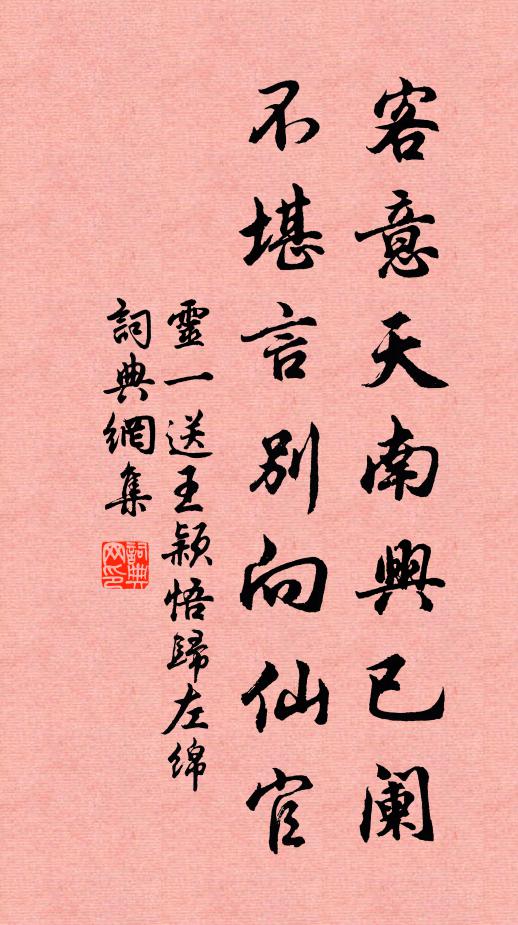 客意天南興已闌
不堪言別向仙官
靈一送王潁悟歸左綿
詞典網集
詞典網印